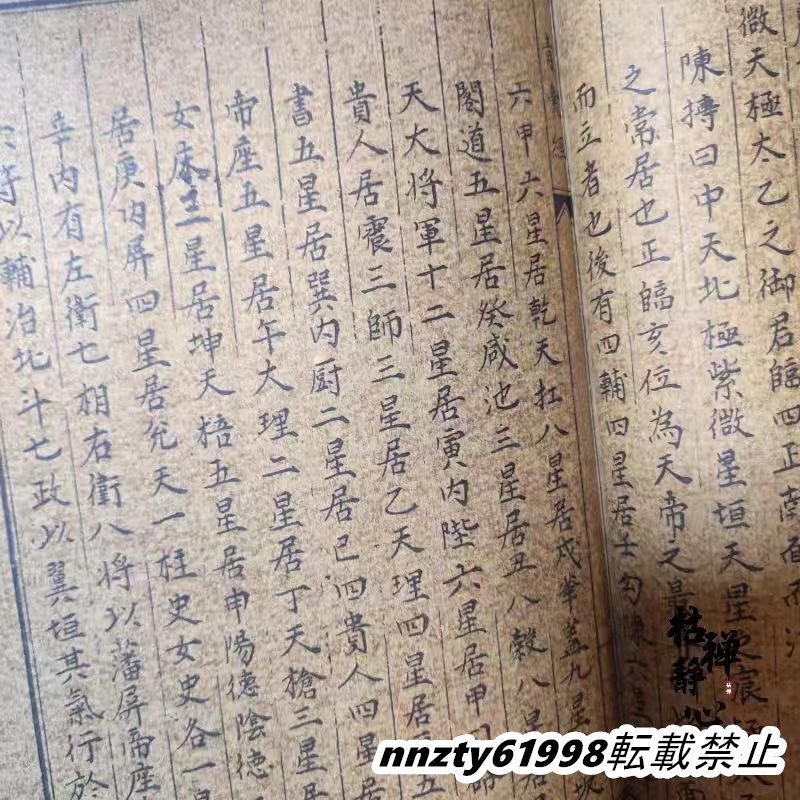 微天極太乙之御君臨四正南面而
陳摶曰中天北極紫微星垣天星
之常居也正臨亥位為天帝之最
而立者也後有四輔四星居壬勾陳
六甲六星居乾天扛八星居戌華蓋九星
閣道五星居癸咸池三星居丑八穀八星居
天大将軍十二星居寅內陛六星居甲
貴人居震三師三星居乙天理四星居
書五星居巽內厨二星居巳四貴人四星
帝座五星居午大理二星居丁天槍三星
女床三星居坤天棓五星居申陽德陰德
居庚內屏四星居兊天一柱史女史各一
辛內有左衛七相右衛八将以藩屏帝座
以輔治北斗七政以翼垣其氣行於
枯禅静心
nnzty61998転載禁止